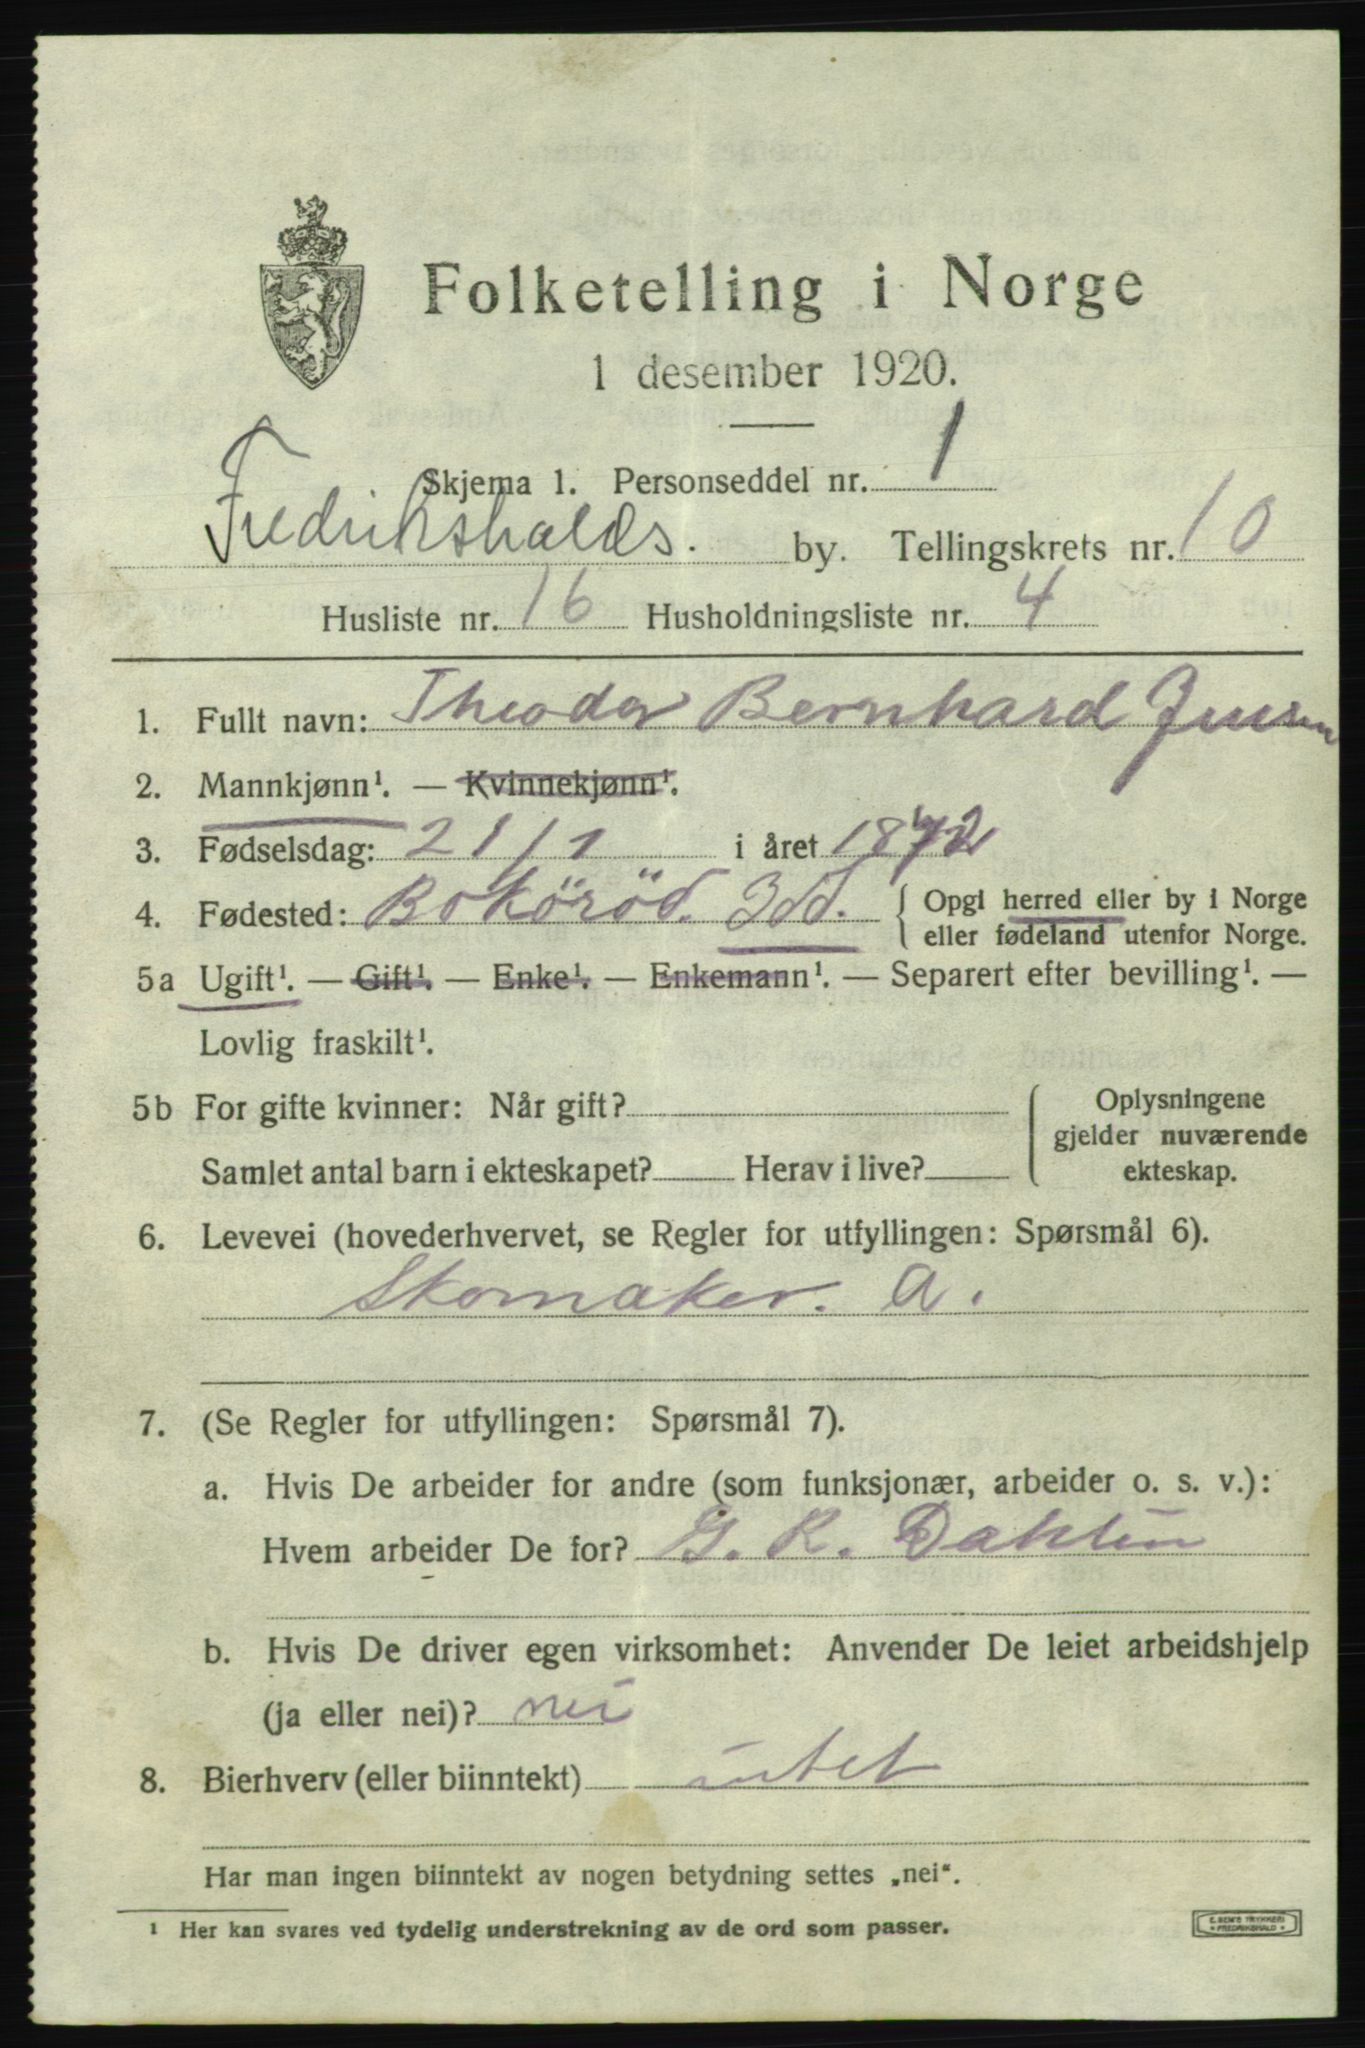 Folketelling i Norge
1 desember 1920.
Skjema 1. Personseddel nr. 1
Fredrikshalds. by. Tellingskrets nr. 10
Husliste nr. 16 Husholdningsliste nr. 4
1. Fullt navn: Theodor Bernhard Jensen
2. Mannkjønn¹. — Kvinnekjønn¹.
3. Fødselsdag: 21/1 i året 1872
4. Fødested: Boköröd. Idd. { Opgi herred eller by i Norge
eller fødeland utenfor Norge.
5a Ugift¹. — Gift¹. — Enke¹. — Enkemann¹. — Separert efter bevilling¹. —
Lovlig fraskilt¹.
5b For gifte kvinner: Når gift?
Samlet antal barn i ekteskapet? Herav i live?
{ Oplysningene
gjelder nuværende
ekteskap.
6. Levevei (hovederhvervet, se Regler for utfyllingen: Spørsmål 6).
Skomaker. a.
7. (Se Regler for utfyllingen: Spørsmål 7).
a. Hvis De arbeider for andre (som funksjonær, arbeider o. s. v.):
Hvem arbeider De for? G. R. Dahlin
b. Hvis De driver egen virksomhet: Anvender De leiet arbeidshjelp
(ja eller nei)? nei
8. Bierhverv (eller biinntekt) intet
Har man ingen biinntekt av nogen betydning settes „nei“.
¹ Her kan svares ved tydelig understrekning av de ord som passer.
E. SEM'S TRYKKERI
FREDRIKSHALD